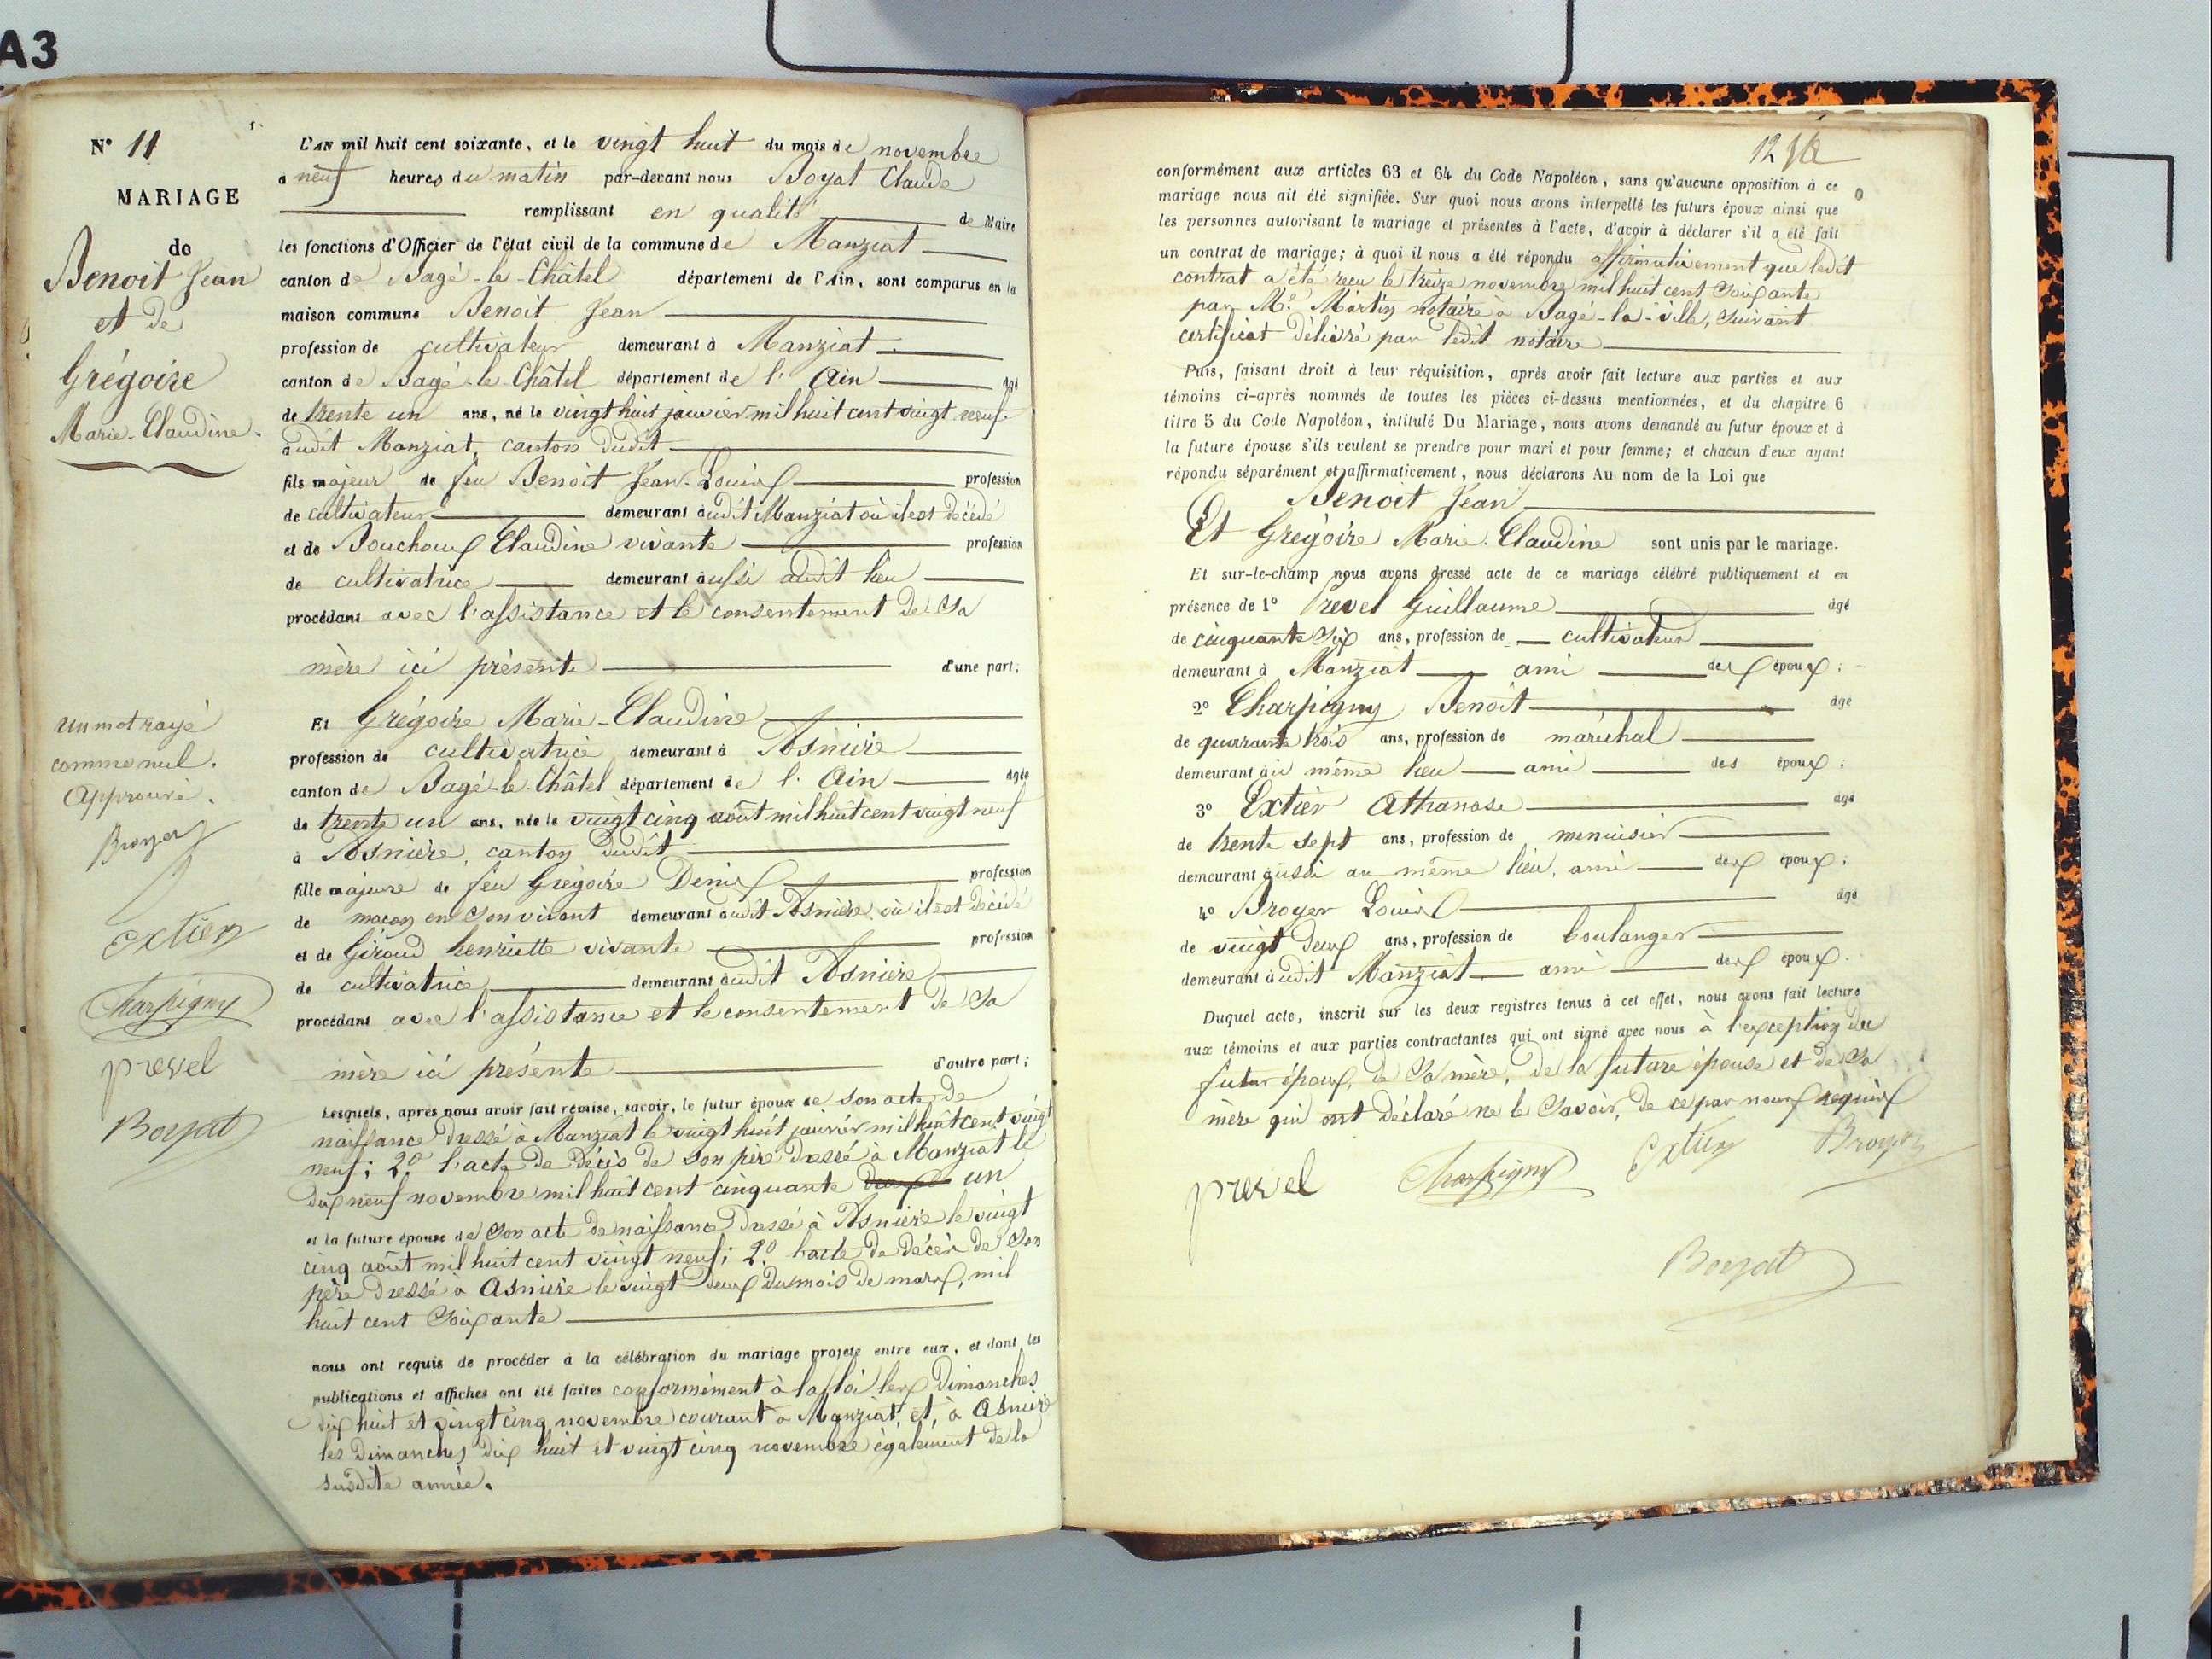 A3
N° 11
MARIAGE
de
Benoit Jean
et de
Grégoire
Marie-Claudine.
un mot rayé
comme nul.
Approuvé.
Broyer
Extier
Charpigny
prevel
Boyat
L'AN mil huit cent soixante, et le vingt huit du mois de novembre
a neuf heures du matin par-devant nous Boyat Claude
remplissant en qualité de Maire
les fonctions d'Officier de l'état civil de la commune de Manziat
canton de Bagé-le-Châtel département de l'Ain, sont comparus en la
maison commune Benoit Jean
profession de cultivateur demeurant à Manziat
canton de Bagé-le-Châtel département de l'Ain âgé
de trente un ans, né le vingt huit janvier mil huit cent vingt neuf
audit Manziat, canton dudit
fils majeur de feu Benoit Jean-Louis profession
de cultivateur demeurant audit Manziat où il est décédé
et de Bouchoux Claudine vivante profession
de cultivatrice demeurant aussi audit lieu
procédant avec l'assistance et le consentement de sa
mère ici présente d'une part;
Et Grégoire Marie-Claudine
profession de cultivatrice demeurant à Asnière
canton de Bagé-le-Châtel département de l'Ain âgée
de trente un ans, née le vingt cinq août mil huit cent vingt neuf
à Asnière, canton dudit
fille majeure de feu Grégoire Denis profession
de maçon en son vivant demeurant audit Asnière où il est décédé
et de Giroud henriette vivante profession
de cultivatrice demeurant audit Asnière
procédant avec l'assistance et le consentement de sa
mère ici présente d'autre part;
Lesquels, après nous avoir fait remise, savoir, le futur époux de son acte de
naissance dressé à Manziat le vingt huit janvier mil huit cent vingt
neuf; 2° l'acte de décès de son père dressé à Manziat le
dix neuf novembre mil huit cent cinquante deux un
et la future épouse de son acte de naissance dressé à Asnière le vingt
cinq août mil huit cent vingt neuf; 2° l'acte de décès de son
père dressé à Asnière le vingt deux du mois de mars, mil
huit cent soixante
nous ont requis de procéder a la célébration du mariage projeté entre eux, et dont les
publications et affiches ont été faites conformément à la loi les Dimanches
dix huit et vingt cinq novembre courant à Manziat, et, à Asnière
les Dimanches dix huit et vingt cinq novembre également de la
susdite année.
12
conformément aux articles 63 et 64 du Code Napoléon, sans qu'aucune opposition à ce
mariage nous ait été signifiée. Sur quoi nous avons interpellé les futurs époux ainsi que
les personnes autorisant le mariage et présentes à l'acte, d'avoir à déclarer s'il a été fait
un contrat de mariage; à quoi il nous a été répondu affirmativement que ledit
contrat a été reçu le treize novembre mil huit cent soixante
par Me Martin notaire à Bagé-la-ville, suivant
certificat délivré par ledit notaire
Puis, faisant droit à leur réquisition, après avoir fait lecture aux parties et aux
témoins ci-après nommés de toutes les pièces ci-dessus mentionnées, et du chapitre 6
titre 5 du Code Napoléon, intitulé Du Mariage, nous avons demandé au futur époux et à
la future épouse s'ils veulent se prendre pour mari et pour femme; et chacun d'eux ayant
répondu séparément et affirmativement, nous déclarons Au nom de la Loi que
Benoit Jean
Et Grégoire Marie-Claudine sont unis par le mariage.
Et sur-le-champ nous avons dressé acte de ce mariage célébré publiquement et en
présence de 1° Prevel Guillaume âgé
de cinquante six ans, profession de cultivateur
demeurant à Manziat ami des époux;
2° Charpigny Benoit âgé
de quarante trois ans, profession de maréchal
demeurant au même lieu ami des époux;
3° Extier Athanase âgé
de trente sept ans, profession de menuisier
demeurant aussi au même lieu, ami des époux;
4° Broyer Louis âgé
de vingt deux ans, profession de boulanger
demeurant audit Manziat ami des époux.
Duquel acte, inscrit sur les deux registres tenus à cet effet, nous avons fait lecture
aux témoins et aux parties contractantes qui ont signé avec nous à l'exception du
futur époux, de sa mère, de la future épouse et de sa
mère qui ont déclaré ne le savoir, de ce par nous requis
prevel Charpigny Extier Broyer
Boyat